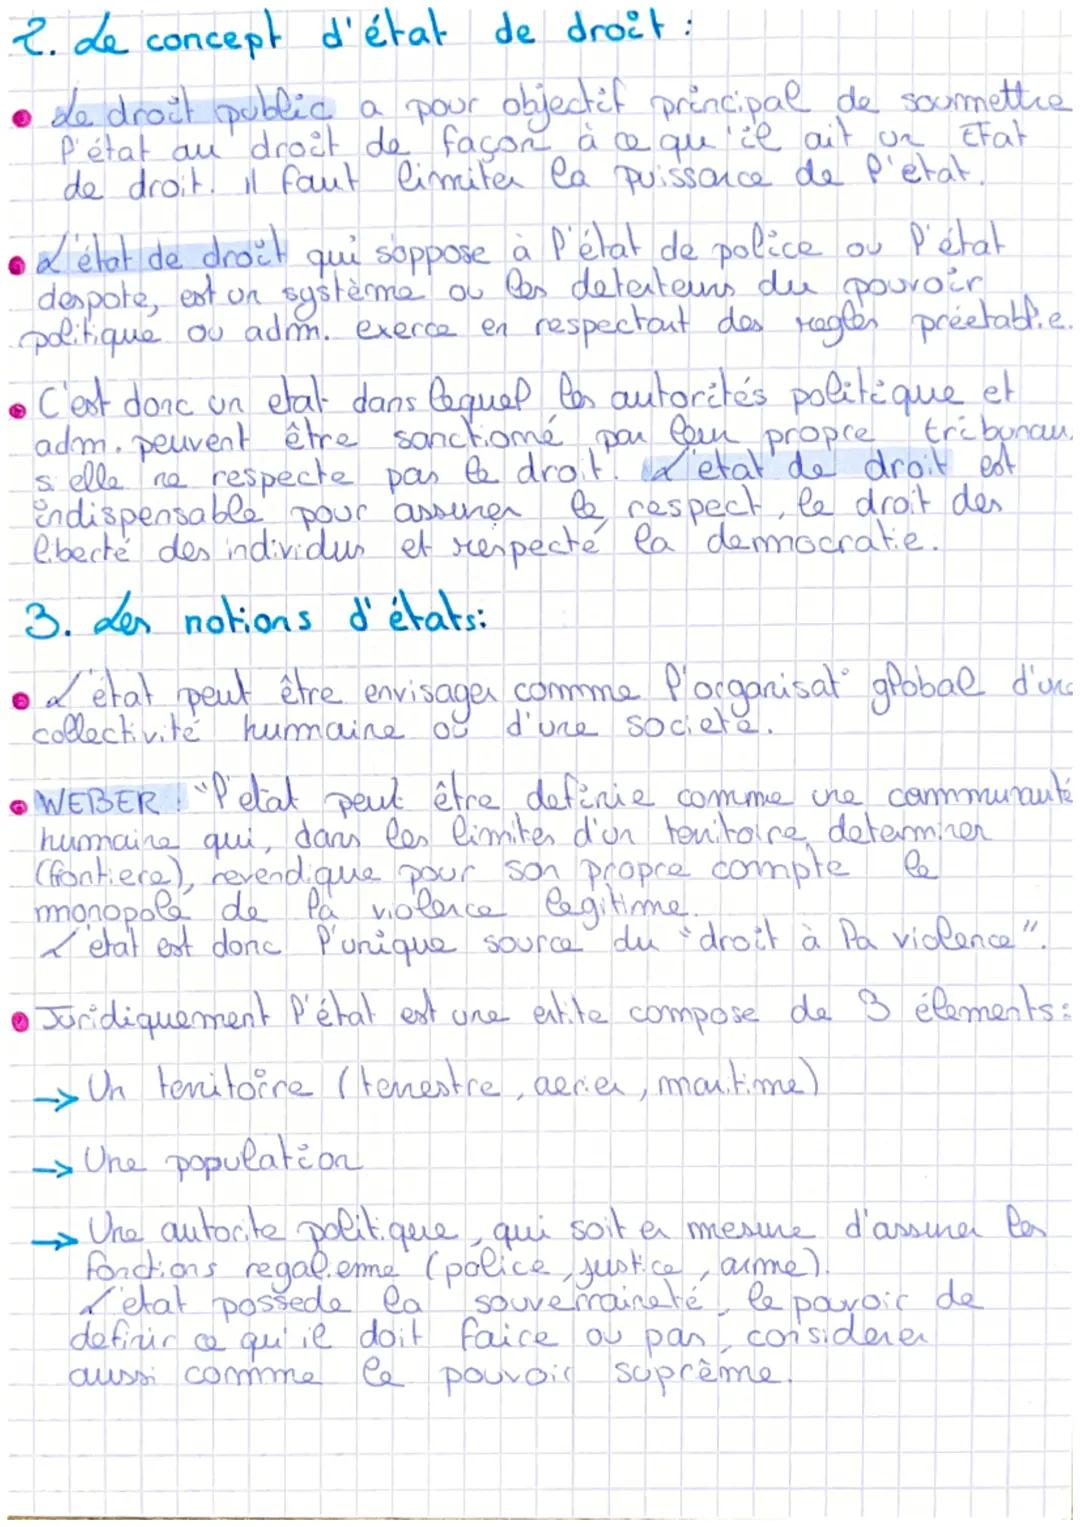 2. Le concept d'état de droit :
Le droit public a pour objectif principal de soumettre
l'état au droit de façon à ce qu'il ait un Etat
de droit. Il faut limiter la puissance de l'etat.
L'état de droit qui s'oppose à l'état de police ou l'état
despote, est un système ou les detenteurs du pouvoir
politique ou adm. exerce en respectant des regles préetablie.
C'est donc un etat dans lequel les autorités politique et
adm. peuvent être sanctionné par leur propre tribunau
s'elle ne respecte pas le droit. L'etat de droit est
indispensable pour assurer le respect, le droit des
liberté des individus et respecté la democratie.
3. Les notions d'états:
L'état peut être envisager comme l'organisat° global d'une
collectivité humaine ou d'une societé.
WEBER : "l'etat peut être definie comme une communauté
humaine qui, dans les limites d'un territoire determiner
(frontiere), revendique pour son propre compte le
monopole de la violence legitime.
L'état est donc l'unique source du "droit à la violence".
Juridiquement l'état est une entite compose de 3 élements:
→ Un territoire (terrestre, aerier, maritime)
→ Une population
→ Une autorite politique, qui soit en mesure d'assurer les
fonctions regalienne (police, justice, arme).
L'etat possède la souverraineté, le pouvoir de
definir ce qu'il doit faire ou pas, considerer
aussi comme le pouvoir suprême.